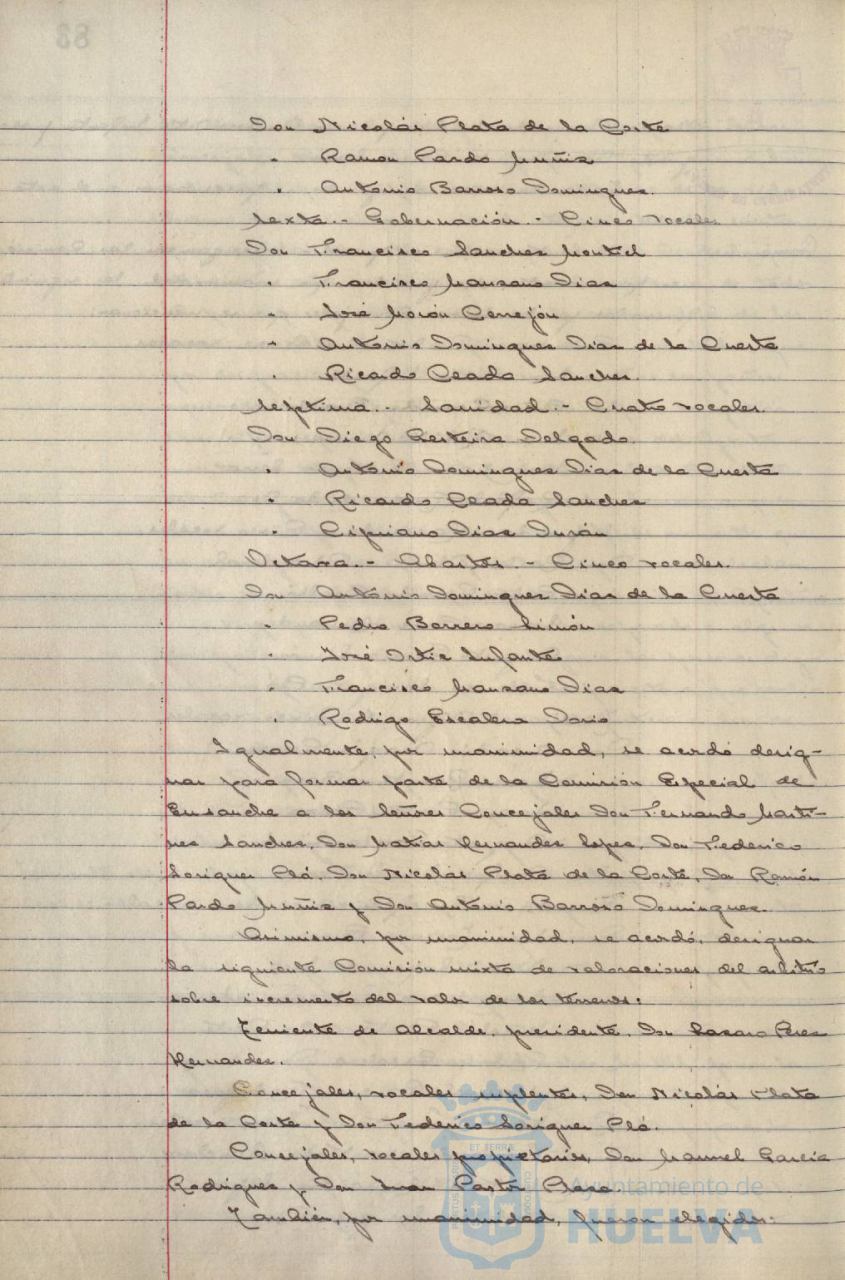 Don Nicolás Plata de la Corte
" Ramon Pardo Muñiz
" Antonio Barroso Dominguez.
Sexta.- Gobernación.- Cinco vocales
Don Francisco Sanchez Montiel
" Francisco Manzano Diaz
" José Morón Cerrejón
" Antonio Dominguez Diaz de la Cuesta
" Ricardo Ceada Sanchez.
Septima.- Sanidad.- Cuatro vocales.
Don Diego Gesteira Delgado.
" Antonio Dominguez Diaz de la Cuesta
" Ricardo Ceada Sanchez
" Cipriano Diaz Durán
Octava.- Abastos.- Cinco vocales.
Don Antonio Dominguez Diaz de la Cuesta
" Pedro Borrero Limón
" José Ortiz Infantes
" Francisco Manzano Diaz
" Rodrigo Escalera Dorio
Igualmente, por unanimidad, se acordó desig-
nar para formar parte de la Comisión Especial de
Ensanche a los Señores Concejales Don Fernando Marti-
nez Sanchez, Don Matias Hernandez Lopez, Don Federico
Soriguer Plá, Don Nicolás Plata de la Corte, Don Ramón
Pardo Muñiz y Don Antonio Barroso Dominguez.
Asimismo, por unanimidad, se acordó, designar
la siguiente Comisión mixta de valoraciones del arbitrio
sobre incremento del valor de los terrenos:
Teniente de Alcalde, presidente, Don Perez
Hernandez.
Concejales, vocales suplentes, Don Nicolás Plata
de la Corte y Don Federico Soriguer Plá.
Concejales, vocales propietarios, Don Manuel Garcia
Rodriguez y Don Juan Pastor
También, por unanimidad, fueron elegidos:
Ayuntamiento de
HUELVA